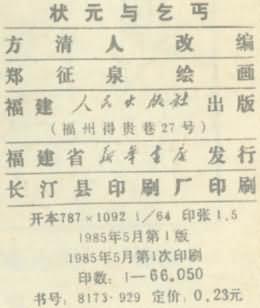 状元与乞丐
方清人 改编
郑征泉 绘画
福建人民出版社 出版
(福州得贵巷27号)
福建省新华书店 发行
长汀县印刷厂印刷
开本787×1092 1/64 印张1.5
1985年5月第1版
1985年5月第1次印刷
印数:1—66,050
书号:8173·929 定价:0.23元